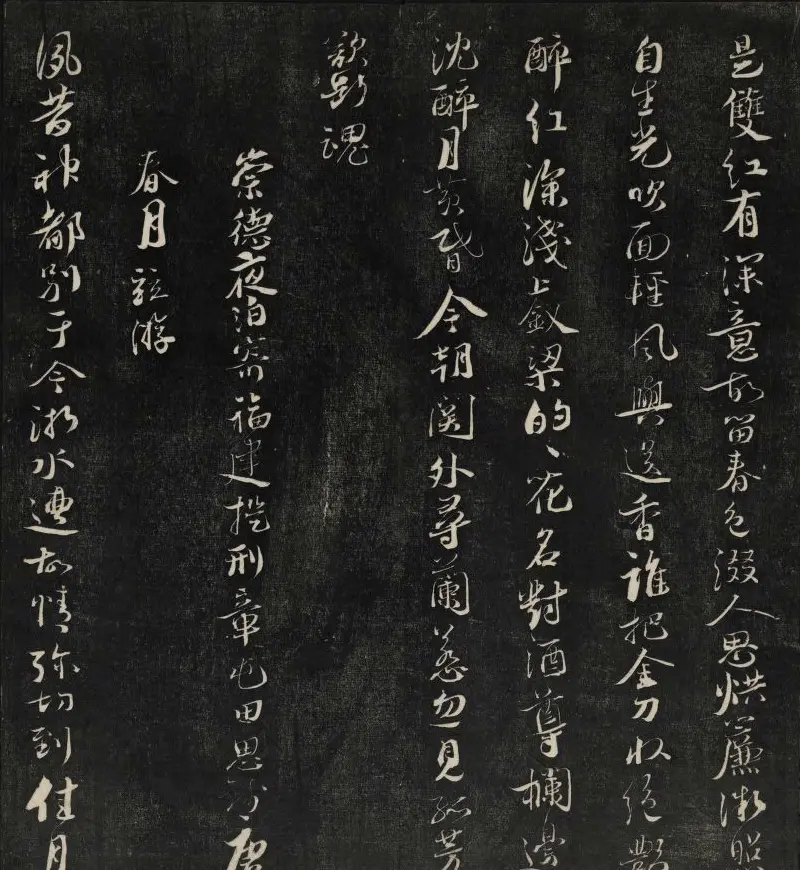 是雙紅有深意故留春色綴人思烘簾微照
自生光吹面輕風與送香誰把金刀收絕艷
醉紅深淺上釵梁的、花名對酒尊欄邊
沈醉月黃昏今朝關外尋蘭蕙忽見孤芳
欲斷魂
崇德夜泊寄福建提刑章屯田思錢唐
春月並游
夙昔神都別于今浙水遭故情弥切到佳月